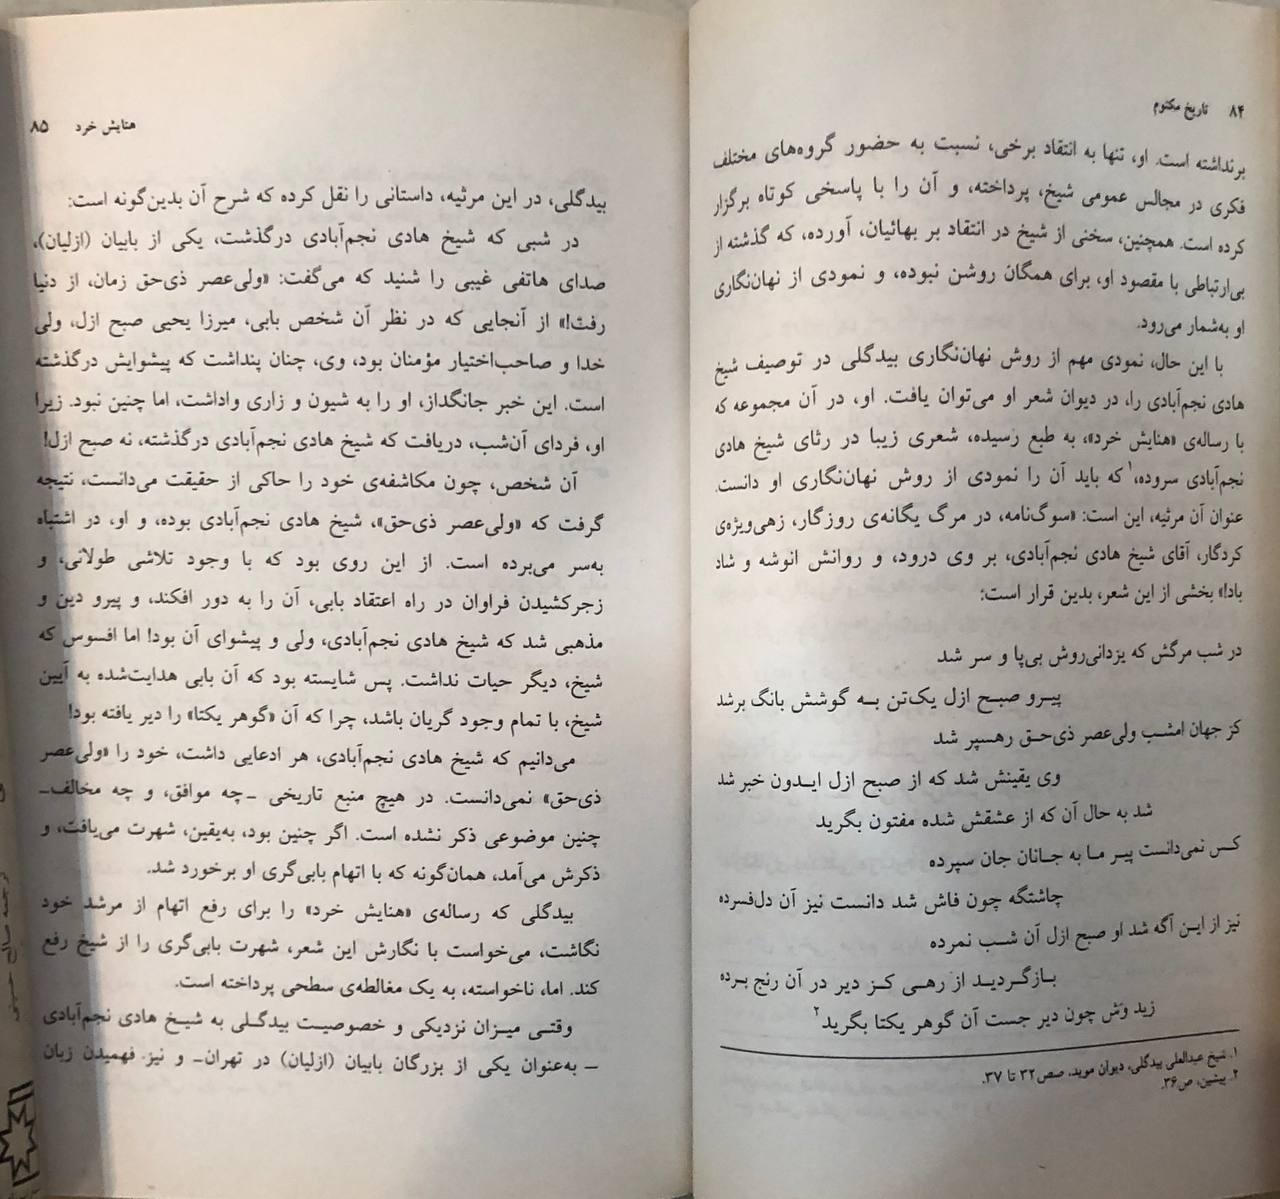 ۸۴ تاریخ مکتوم
برنداشته است. او، تنها به انتقاد برخی، نسبت به حضور گروه‌های مختلف
فکری در مجالس عمومی شیخ، پرداخته، و آن را با پاسخی کوتاه برگزار
کرده است. همچنین، سخنی از شیخ در انتقاد بر بهائیان، آورده، که گذشته از
بی‌ارتباطی با مقصود او، برای همگان روشن نبوده، و نمودی از نهان‌نگاری
او به‌شمار می‌رود.
با این حال، نمودی مهم از روش نهان‌نگاری بیدگلی در توصیف شیخ
هادی نجم‌آبادی را، در دیوان شعر او می‌توان یافت. او، در آن مجموعه که
با رساله‌ی «هنایش خرد»، به طبع رسیده، شعری زیبا در رثای شیخ هادی
نجم‌آبادی سروده،۱ که باید آن را نمودی از روش نهان‌نگاری او دانست.
عنوان آن مرثیه، این است: «سوگ‌نامه، در مرگ یگانه‌ی روزگار، زهی‌ویژه‌ی
کردگار، آقای شیخ هادی نجم‌آبادی، بر وی درود، و روانش انوشه و شاد
باد!» بخشی از این شعر، بدین قرار است:
در شب مرگش که یزدانی‌روش بی‌پا و سر شد
پیرو صبح ازل یک‌تن به گوشش بانگ برشد
کز جهان امشب ولی‌عصر ذی‌حق رهسپر شد
وی یقینش شد که از صبح ازل ایدون خبر شد
شد به حال آن که از عشقش شده مفتون بگرید
کس نمی‌دانست پیر ما به جانان جان سپرده
چاشتگه چون فاش شد دانست نیز آن دل‌فسرده
نیز از این آگه شد او صبح ازل آن شب نمرده
بازگردید از رهی کز دیر در آن رنج برده
زید وَش چون دیر جست آن گوهر یکتا بگرید۲
۱. شیخ عبدالعلی بیدگلی، دیوان موید، صص۳۲ تا ۳۷.
۲. پیشین، ص۳۶.
هنایش خرد ۸۵
بیدگلی، در این مرثیه، داستانی را نقل کرده که شرح آن بدین‌گونه است:
در شبی که شیخ هادی نجم‌آبادی درگذشت، یکی از بابیان (ازلیان)،
صدای هاتفی غیبی را شنید که می‌گفت: «ولی‌عصر ذی‌حق زمان، از دنیا
رفت!» از آنجایی که در نظر آن شخص بابی، میرزا یحیی صبح ازل، ولی
خدا و صاحب‌اختیار مؤمنان بود، وی، چنان پنداشت که پیشوایش درگذشته
است. این خبر جانگداز، او را به شیون و زاری واداشت، اما چنین نبود. زیرا
او، فردای آن‌شب، دریافت که شیخ هادی نجم‌آبادی درگذشته، نه صبح ازل!
آن شخص، چون مکاشفه‌ی خود را حاکی از حقیقت می‌دانست، نتیجه
گرفت که «ولی‌عصر ذی‌حق»، شیخ هادی نجم‌آبادی بوده، و او، در اشتباه
به‌سر می‌برده است. از این روی بود که با وجود تلاشی طولانی، و
زجرکشیدن فراوان در راه اعتقاد بابی، آن را به دور افکند، و پیرو دین و
مذهبی شد که شیخ هادی نجم‌آبادی، ولی و پیشوای آن بود! اما افسوس که
شیخ، دیگر حیات نداشت. پس شایسته بود که آن بابی هدایت‌شده به آیین
شیخ، با تمام وجود گریان باشد، چرا که آن «گوهر یکتا» را دیر یافته بود!
می‌دانیم که شیخ هادی نجم‌آبادی، هر ادعایی داشت، خود را «ولی‌عصر
ذی‌حق» نمی‌دانست. در هیچ منبع تاریخی -چه موافق، و چه مخالف-
چنین موضوعی ذکر نشده است. اگر چنین بود، به‌یقین، شهرت می‌یافت، و
ذکرش می‌آمد، همان‌گونه که با اتهام بابی‌گری او برخورد شد.
بیدگلی که رساله‌ی «هنایش خرد» را برای رفع اتهام از مرشد خود
نگاشت، می‌خواست با نگارش این شعر، شهرت بابی‌گری را از شیخ رفع
کند. اما، ناخواسته، به یک مغالطه‌ی سطحی پرداخته است.
وقتی میزان نزدیکی و خصوصیت بیدگلی به شیخ هادی نجم‌آبادی
- به‌عنوان یکی از بزرگان بابیان (ازلیان) در تهران- و نیز فهمیدن زبان
ترجمه صالح حسینی